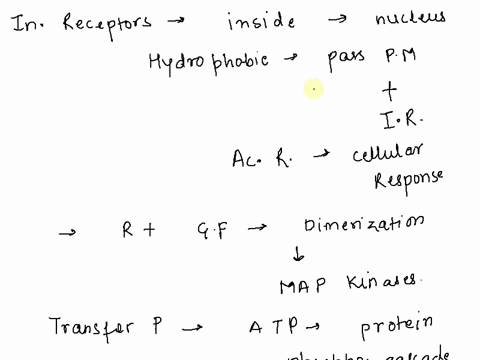 In. Receptors → inside → nucleus
Hydrophobic → pass P.M
+
I.R.
Ac. R. → cellular
Response
→ R + G.F → Dimerization
↓
MAP Kinases.
Transfer P → ATP → protein
cascade